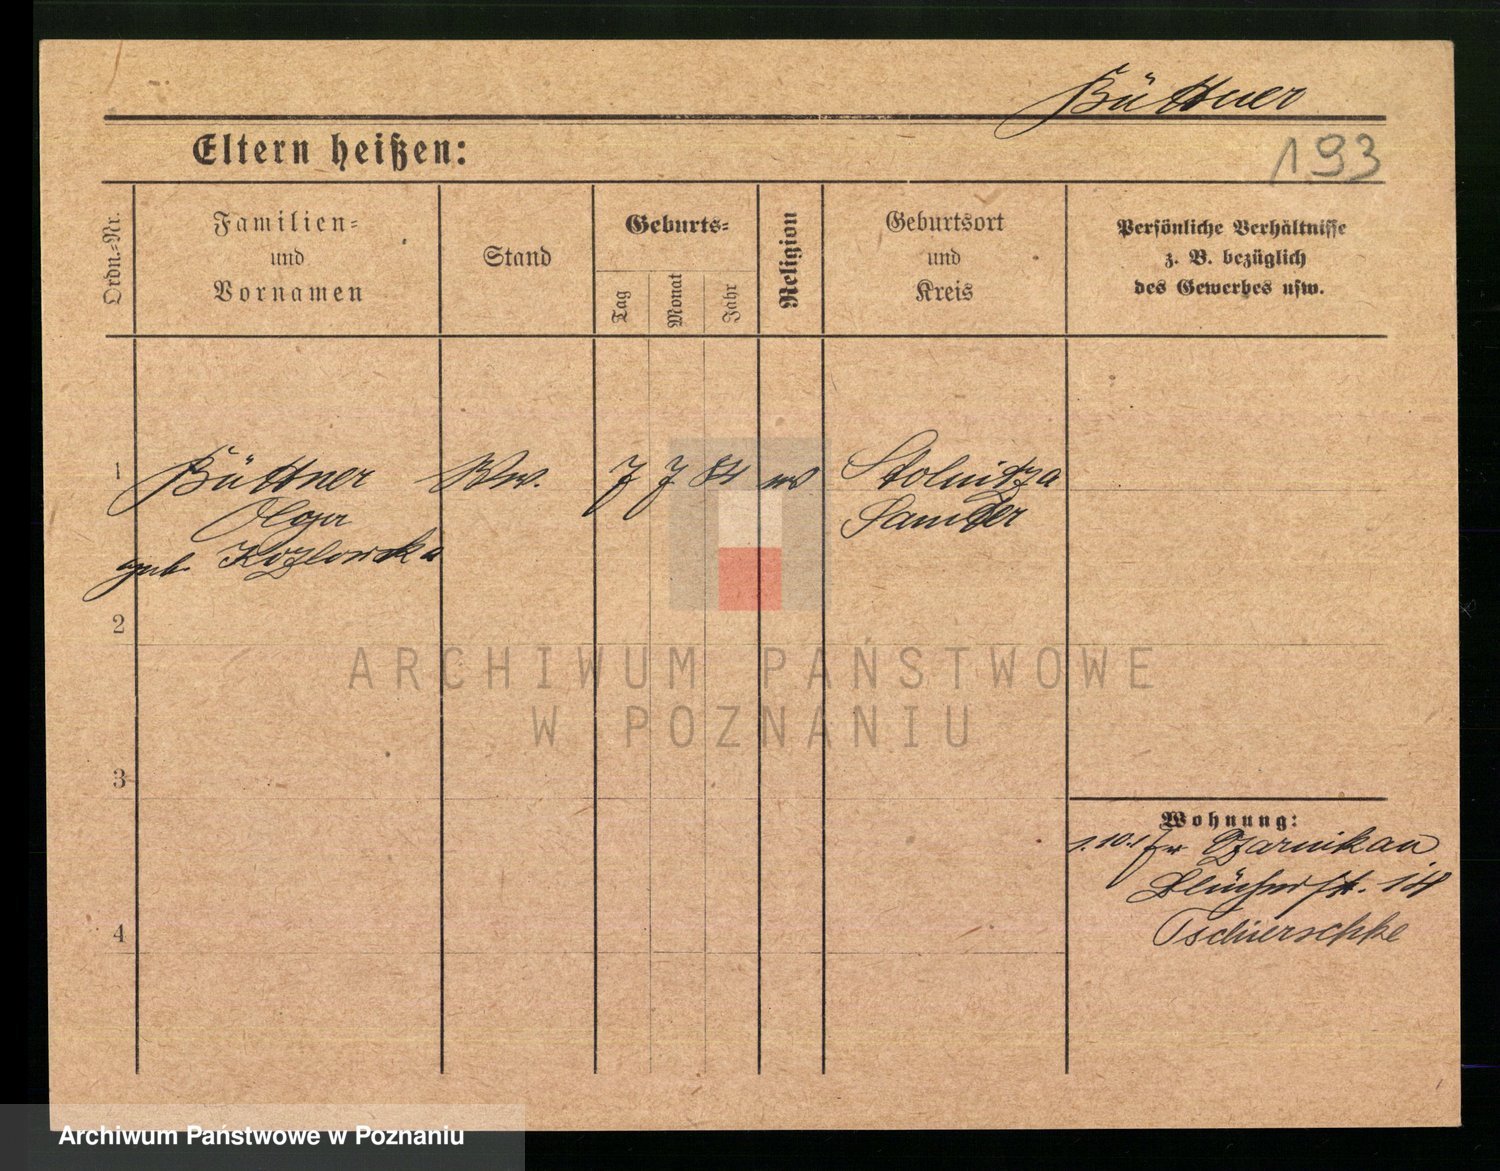 Büttner
193
Eltern heißen:
Ordn.-Nr.
Familien-
und
Vornamen
Stand
Geburts-
Tag
Monat
Jahr
Religion
Geburtsort
und
Kreis
Persönliche Verhältnisse
z. B. bezüglich
des Gewerbes usw.
1
Büttner Ww. 7 7 84 ev Stolnitza
Olga Samter
geb. Kozlowska
2
ARCHIWUM PAŃSTWOWE
W POZNANIU
3
Wohnung:
1.10.17 Czarnikau
Blücherst. 14
Tschierschke
4
Archiwum Państwowe w Poznaniu